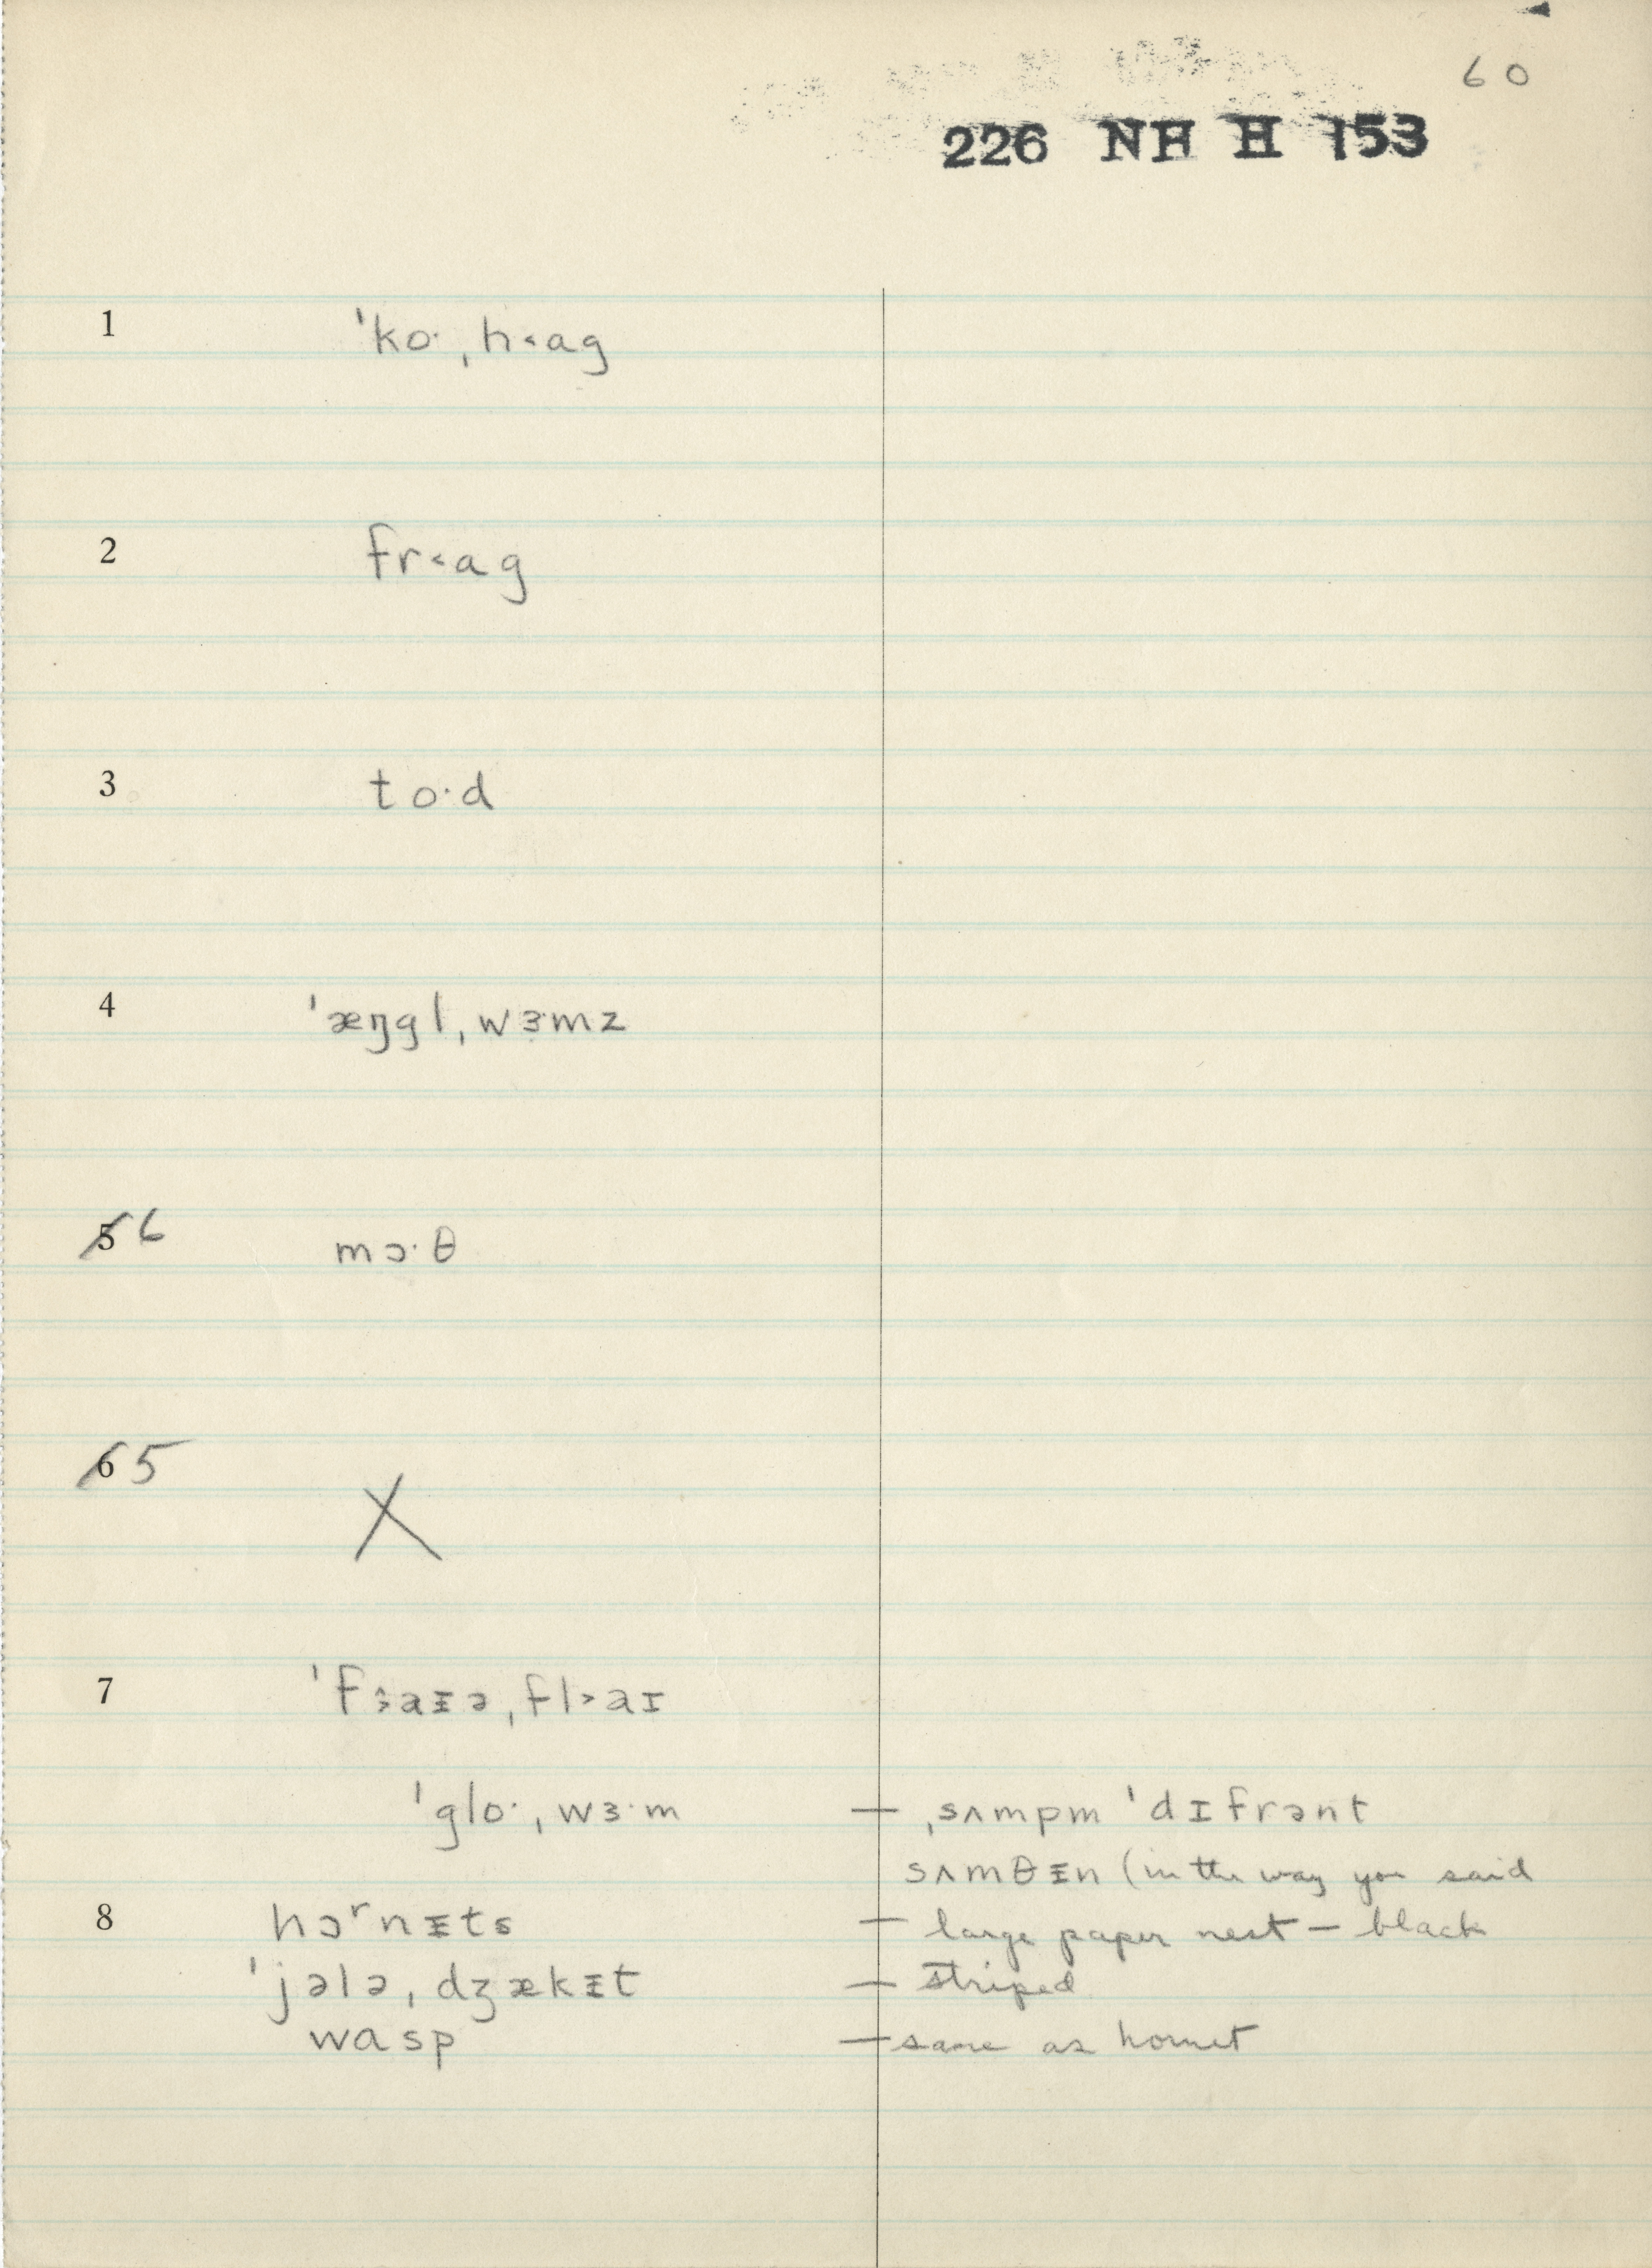 60
226 NH H 153
1 ˈko· ˌh˂ag
2 fr˂ag
3 to·d
4 ˈæŋgl ˌwɜ·mz
5 6 mɔ·θ
6 5 X
7 ˈf˃aᵻə ˌfl˃aɪ
ˈglo· ˌwɜ·m — ˌsʌmpm ˈdɪfrənt
sʌmθᵻn (in the way you said
8 hɔʳnᵻts — large paper nest — black
ˈjələ ˌdʒækᵻt — striped
wasp — same as hornet